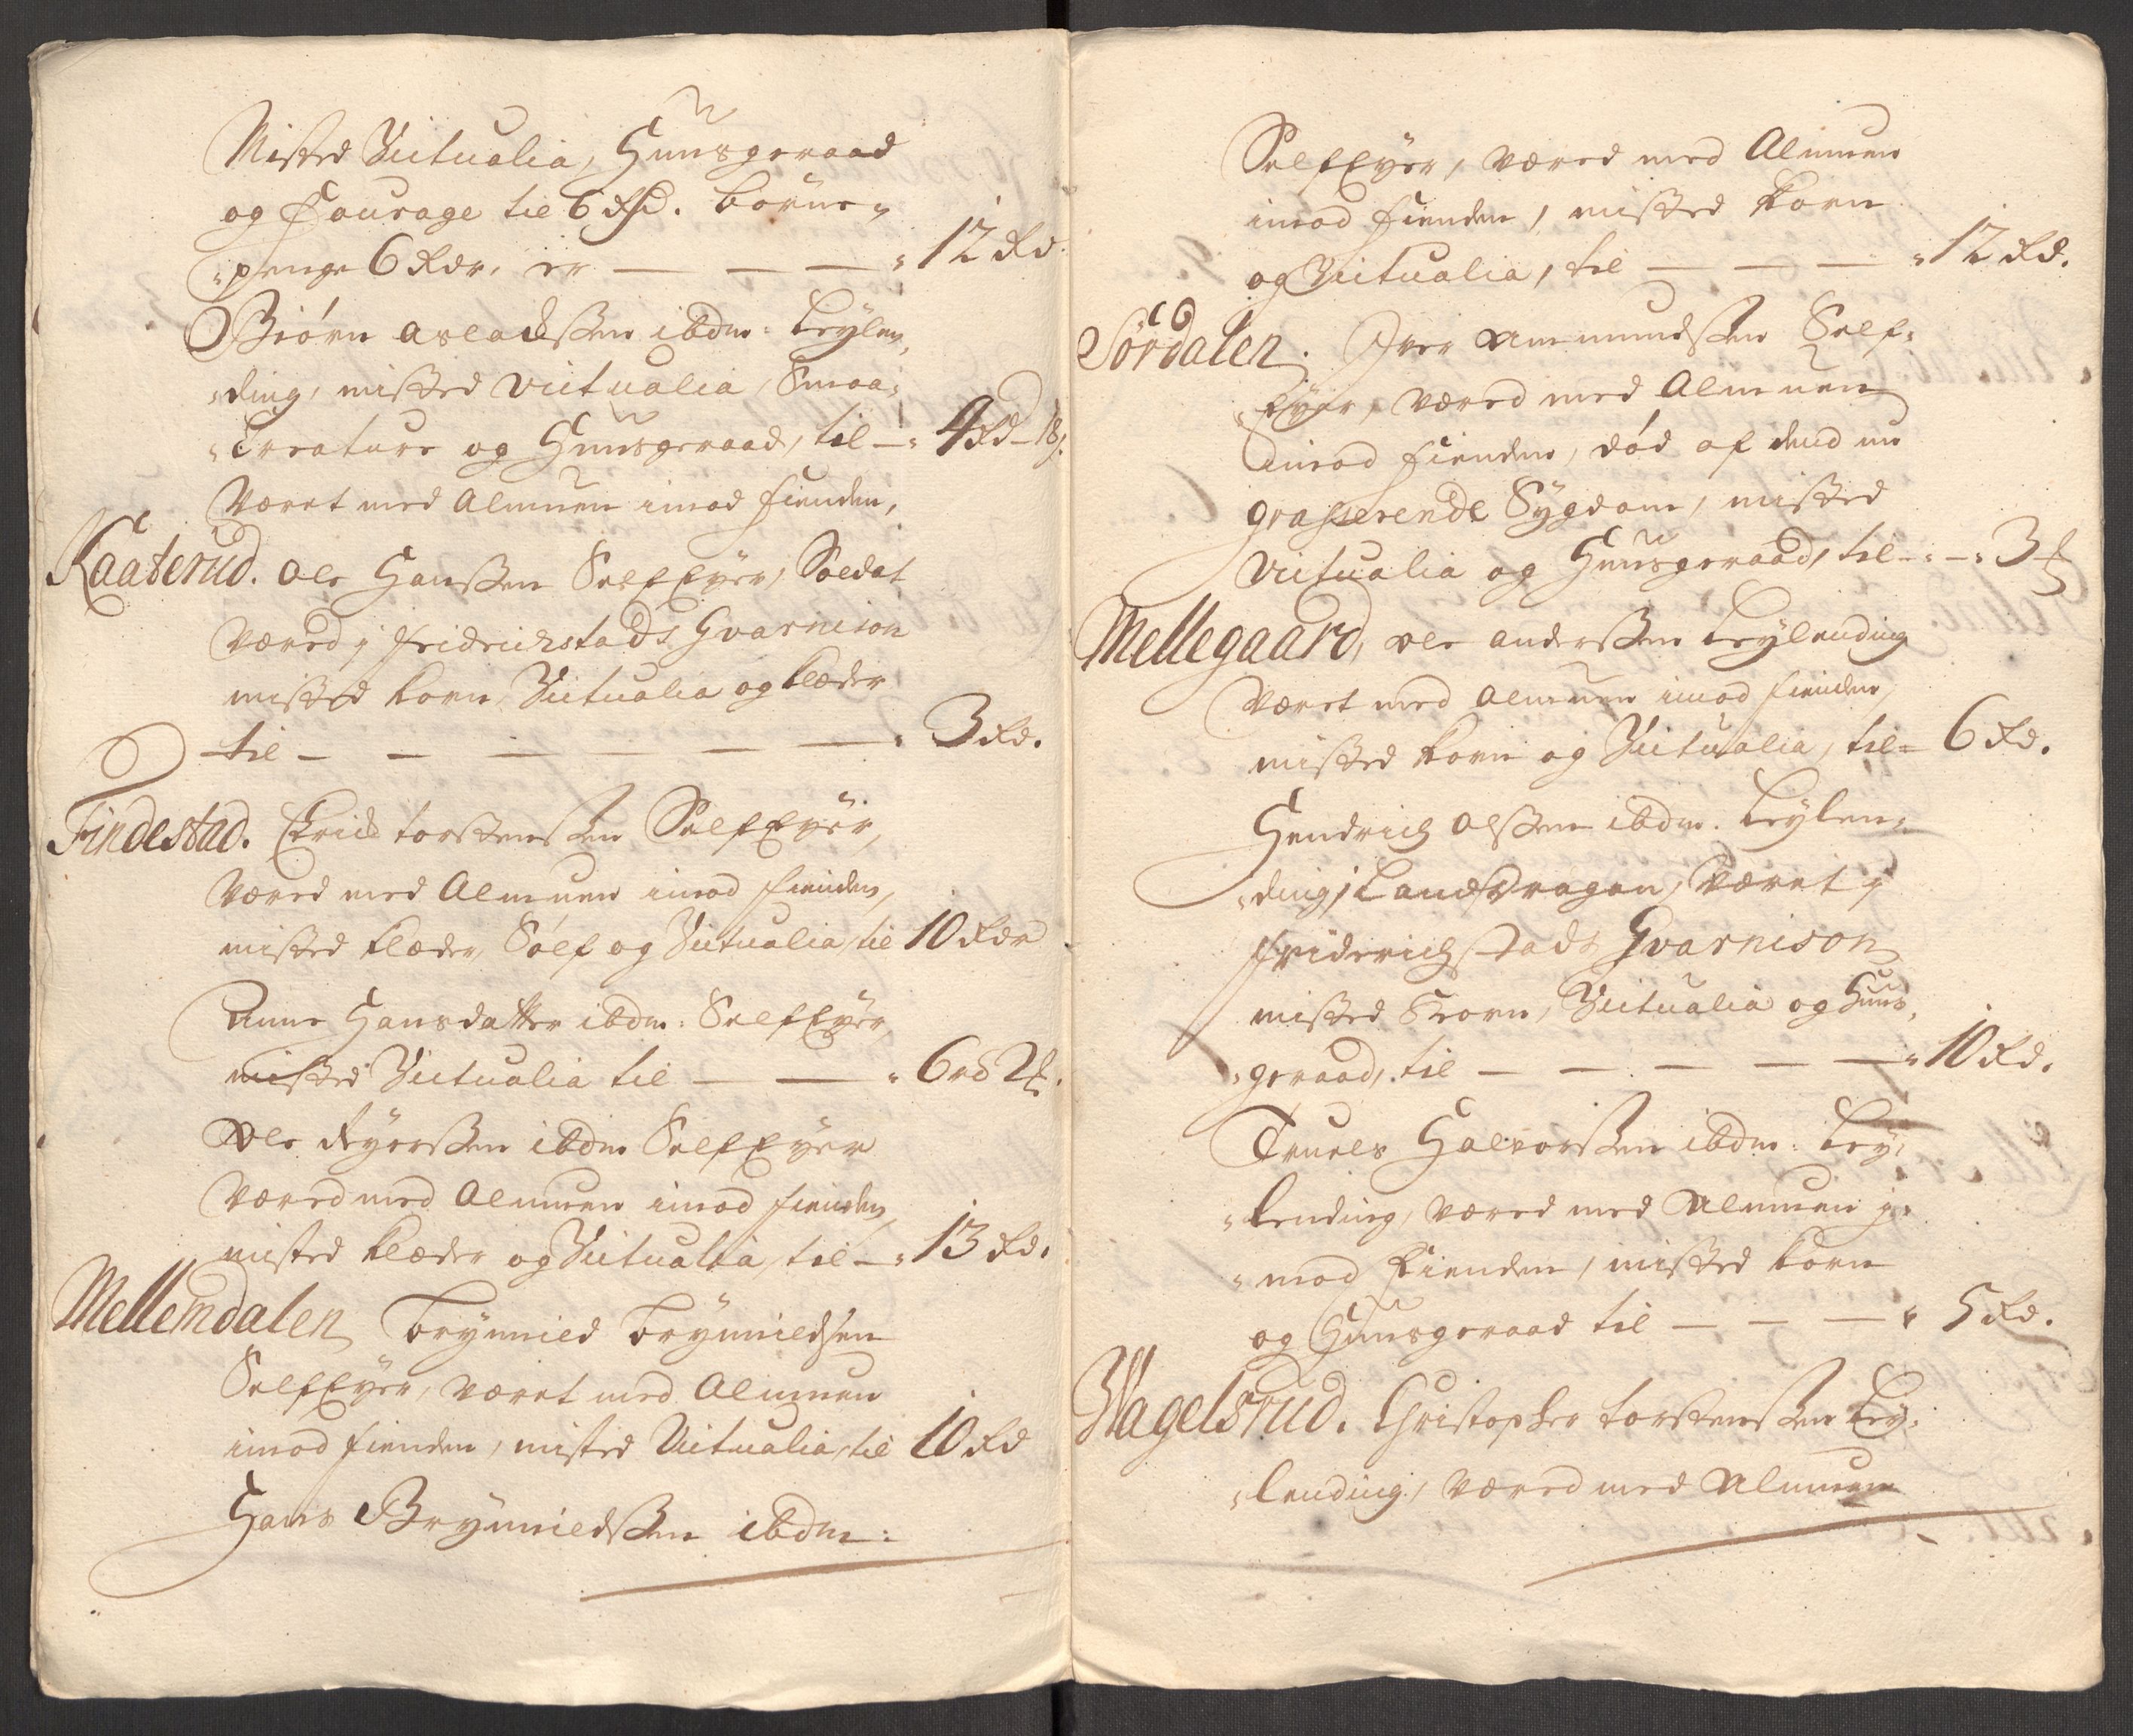 Misted Victualia, Huusgeraad
og Fourage til 6 Rd. børne-
penge 6 Rdr. er — — — 12 Rd.
Biørn Aslackßen ibdm: Leylen-
ding, misted Victualia, Smaa-
Creature og Huusgeraad, til — 4 Rd
Været med Almuen imod fienden,
Kaaterud. Ole Hanßen SelfEyer, Soldat
Været i Fridrichstads Gvarnison
misted korn, Victualia og klæder
til — — — — — 3 Rd.
Findestad. Erick torstensßen SelfEyer,
Wæred med Almuen imod fienden,
misted klæder, Sølf og Victualia, til 10 Rdr
Anne Hansdatter ibdm: SelfEyer,
misted Victualia til — — 6 rd
Ole Reyersßen ibdm SelfEyer
Wæred med Almuen imod fienden,
misted klæder og Victualia, til — 13 Rd.
Mellemdalen Brynnild Brynnildsen
SelfEyer, været med Almuen
imod fienden, misted Victualia, til 10 Rd
Hans Brynnildßen ibdm:
SelfEyer, Wæred med Almuen
imod fienden, misted korn
og Victualia, til — — — 12 Rd.
Sørdalen. Iver Ammundßen Self-
Eyer, Wæred med Almuen
imod fienden, død af dend nu
grasserende Sygdom, misted
Victualia og Huusgeraad, til — 3
Mellegaard, Ole Anderßen Leylending
Været med Almuen imod fienden,
misted korn og Victualia, til 6 Rd.
Hendrich Olßen ibdm. Leylen-
ding, LandDragon, Været i
Friderichstads Gvarnison
misted Korn, Victualia og Huus-
geraad, til — — — — 10 Rd.
Truels Halvorßen ibdm: Ley-
lending, Wæred med Almuen i-
mod Fienden, misted korn
og Huusgeraad til — — — 5 Rd.
Wagelsrud. Christopher torstensßen Ley-
lending, Wæred med Almuen